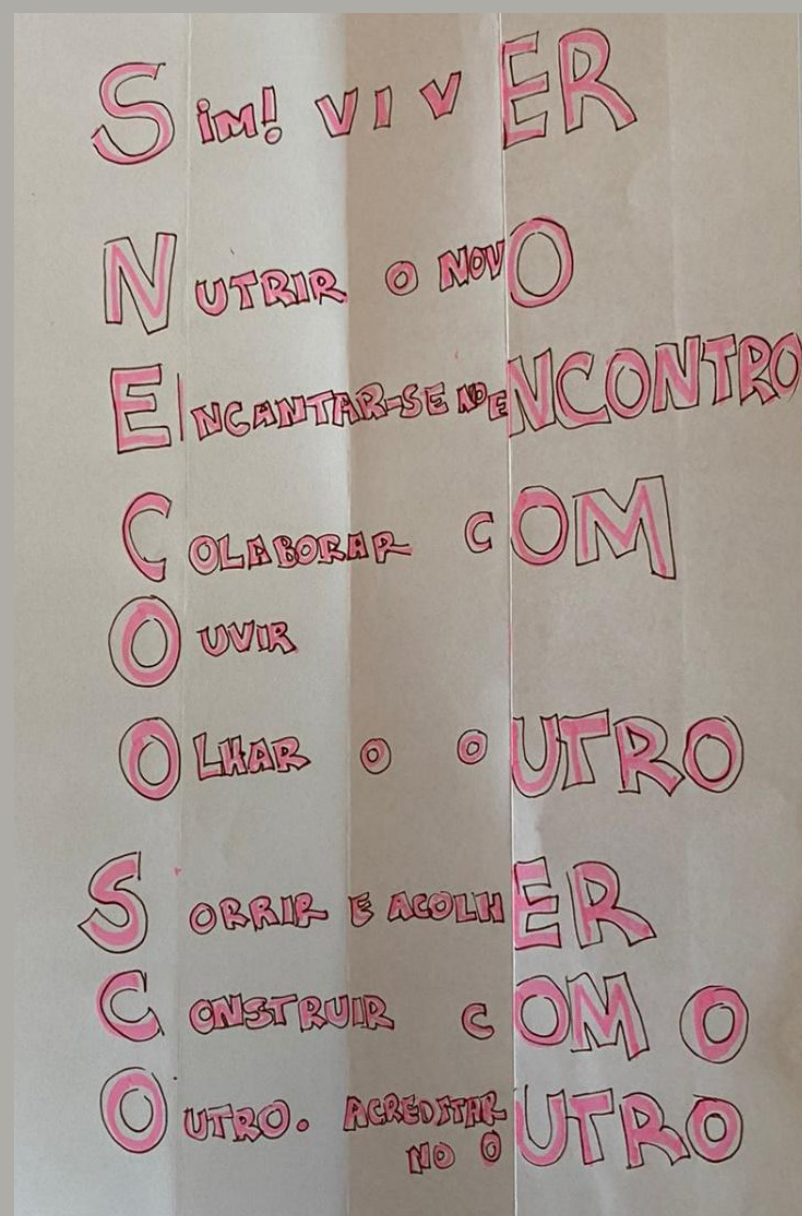 Sim! VIVER
NUTRIR O NOVO
ENCANTAR-SE NO ENCONTRO
COLABORAR COM
OUVIR
OLHAR O OUTRO
SORRIR E ACOLHER
CONSTRUIR COM O
OUTRO. ACREDITAR
NO OUTRO